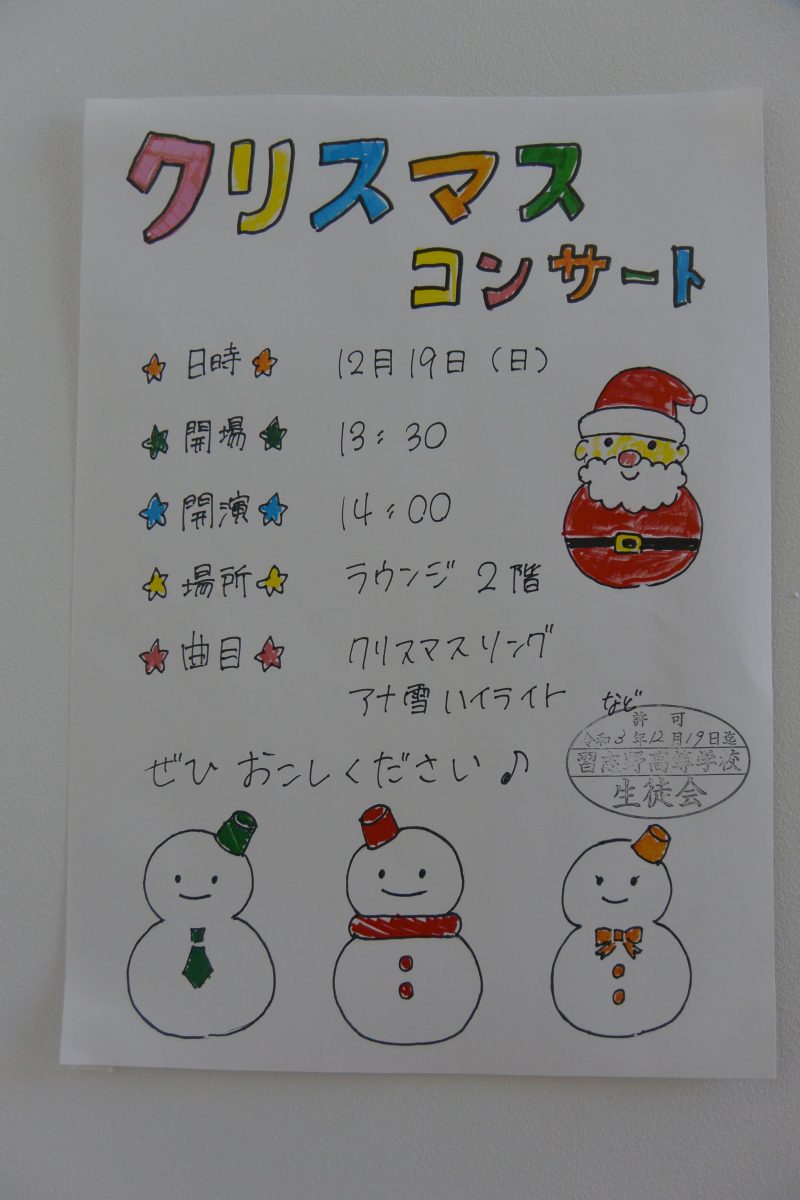 クリスマス
コンサート
日時 12月19日(日)
開場 13:30
開演 14:00
場所 ラウンジ 2階
曲目 クリスマスソング
アナ雪ハイライト など
許可
令和3年12月19日迄
習志野高等学校
生徒会
ぜひ おこしください♪